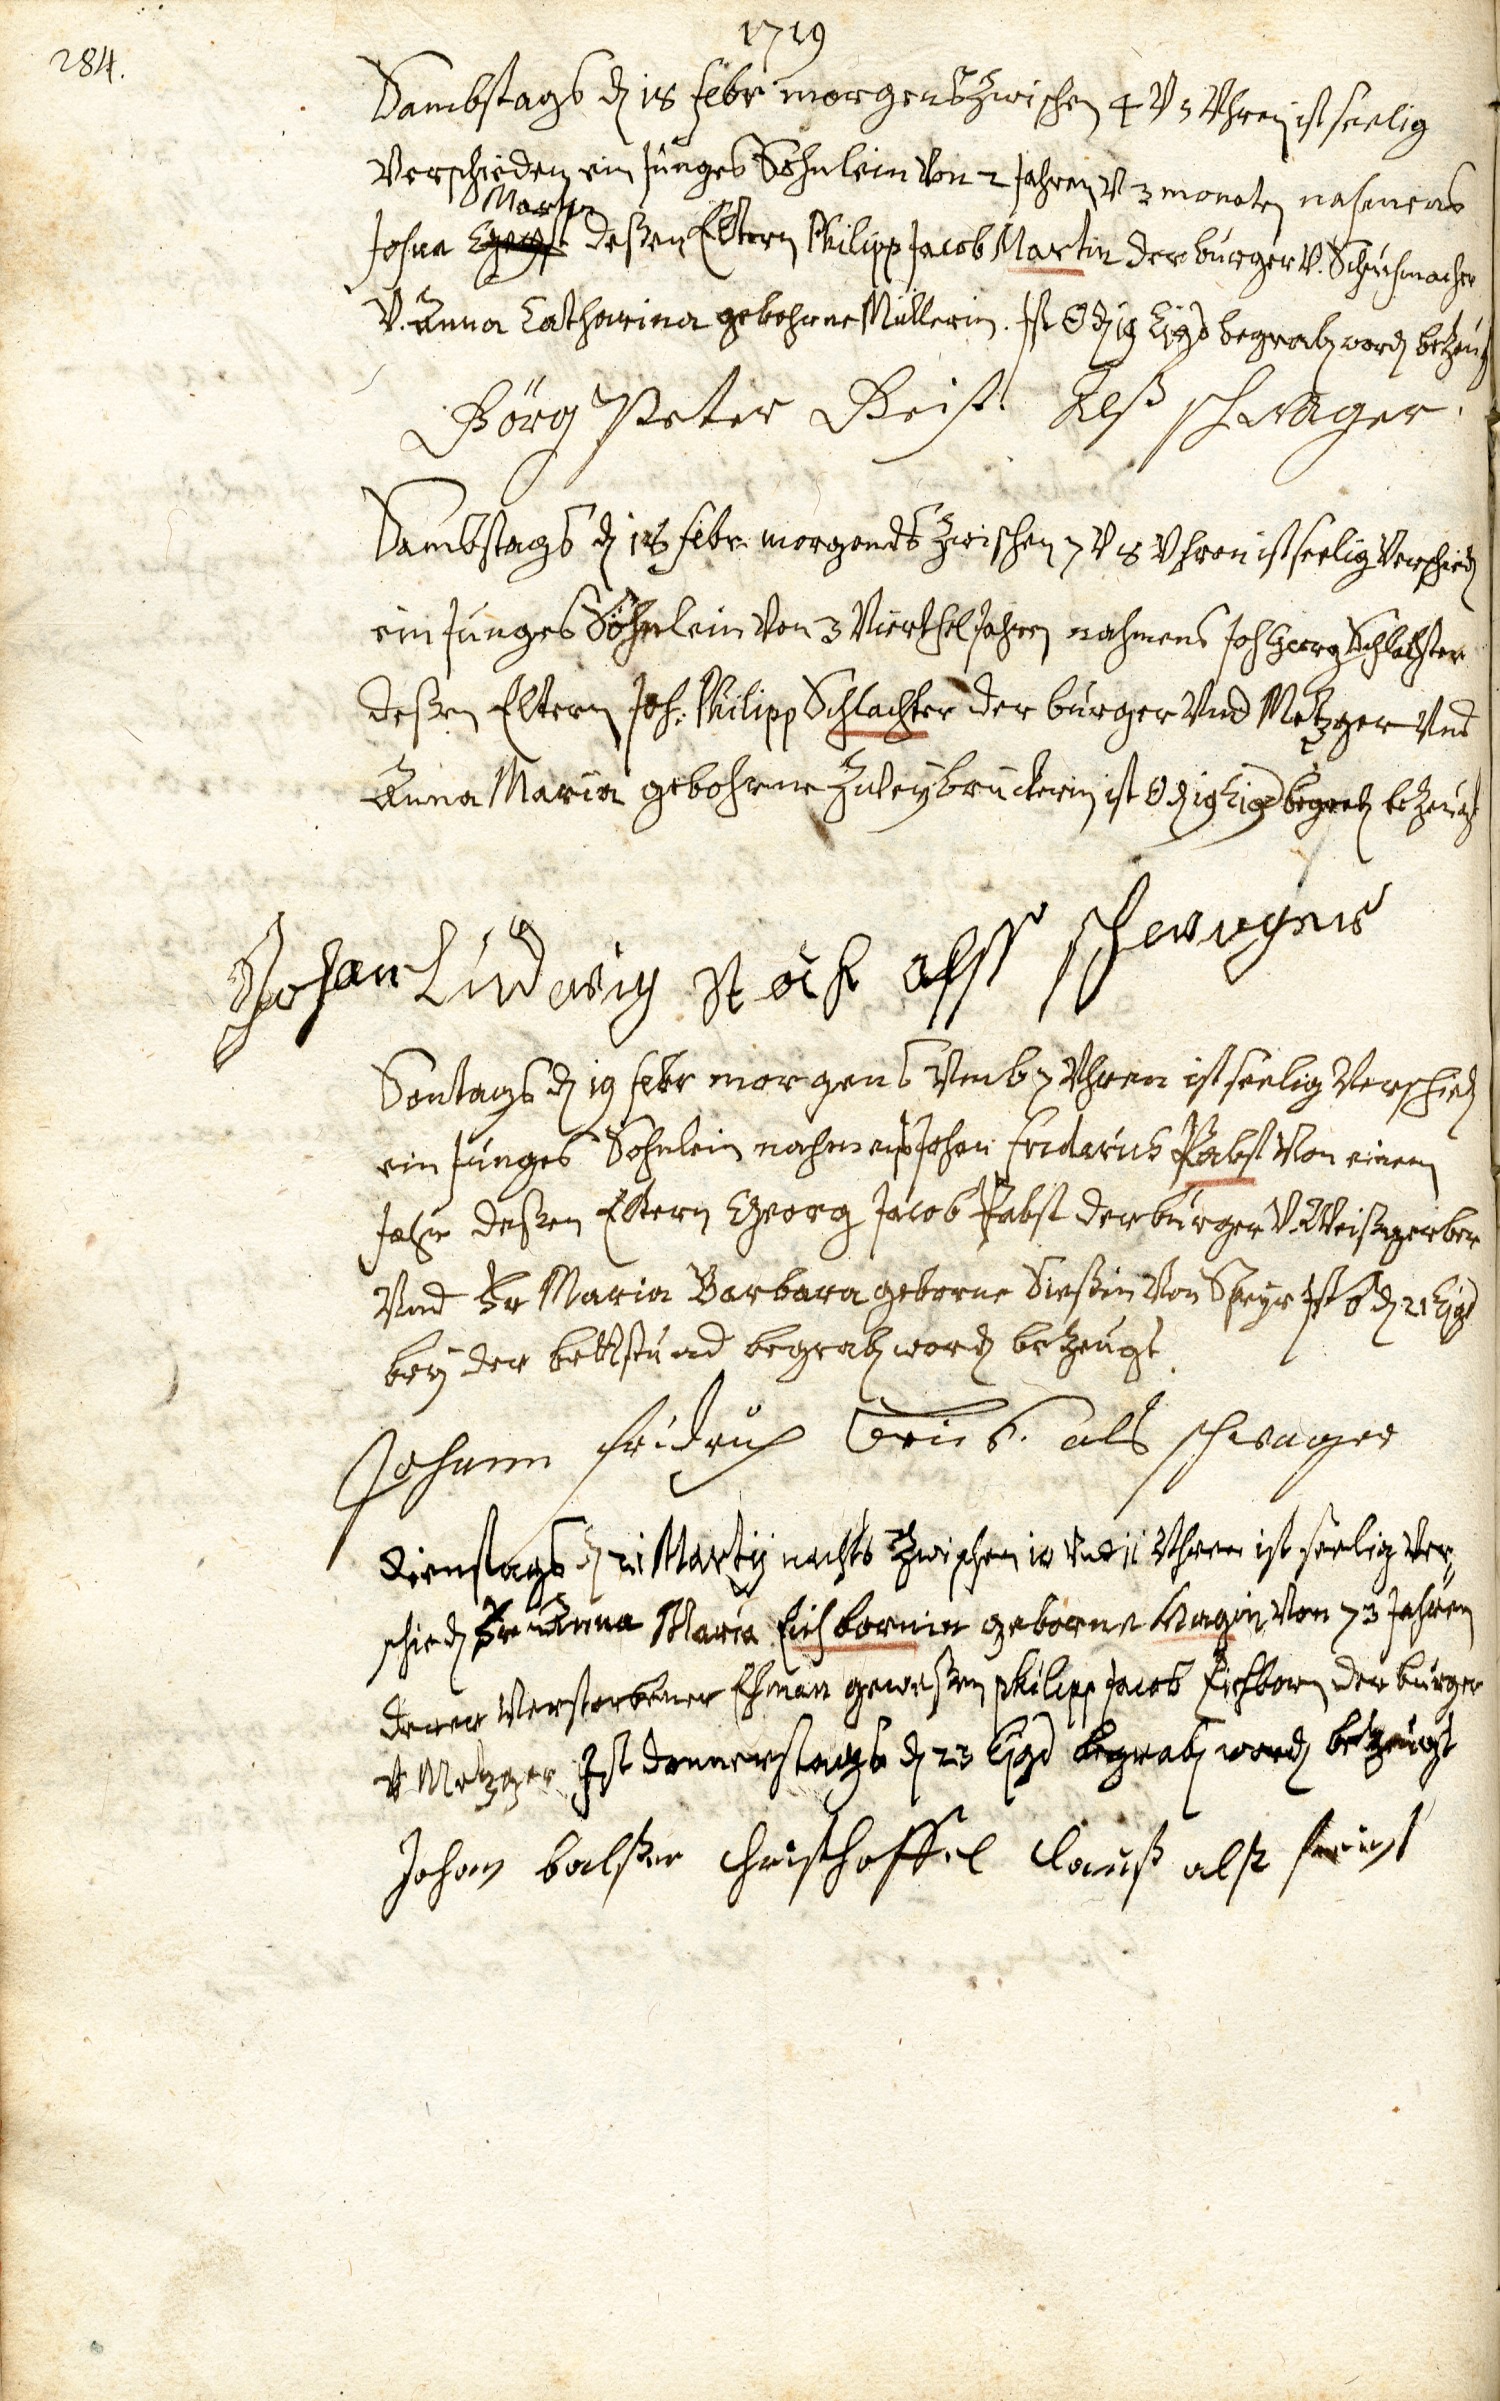 284.
1719
Sambstags d 18 febr morgens Zwischen 4 V 5 Vhren ist seelig
Verschieden ein Junges Söhnlein Von 2 Jahren V 3 monaten nahmens
Martin
Johan deßen Eltern Philipp Jacob Martin der burger V. Schuhmacher
V. Anna Catharina gebohrne Müllerin. Ist ☉ d 19 Ejgd begrab word bezeugt
Görg Peter Geist Alß schwager.
Sambstags d 18 febr morgends Zwischen 7 V 8 Vhren ist seelig Verschied
ein Junges Söhnlein Von 3 Vierthel Jahren nahmens Joh Georg Schlachter
deßen Eltern Joh. Philipp Schlachter der burger Vnd Metzger Vnd
Anna Maria gebohrne Zweybruckerin ist ☉ d 19 Ejgd begrab bezeugt
Johan Ludwig Koch alß schwager
Sontags d 19 febr morgens Vmb 7 Vhren ist seelig Verschied
ein Junges Sohnlein nahmens Johan Fridericus Pabst Von einem
Jahr deßen Eltern Georg Jacob Pabst der burger V. Weißgerber
Vnd Fr Maria Barbara geborne Süßin Von Speyr Ist d 21 Ejgd
bey der bettstund begrab word bezeugt
Johann fridrich als schwager
Dienstags d 21 Martij nachts Zwischen 10 Vnd 11 Vhren ist seelig Ver„
schied Fr Anna Maria Eichbornin geborne Magin Von 73 Jahren
deren Verstorbener Ehman geweßen philipp Jacob Eichborn der burger
V Metzger Ist donnerstags d 23 Ejgd begrab word bezeugt
Johan balßer Christhoffel Clauß alß freind